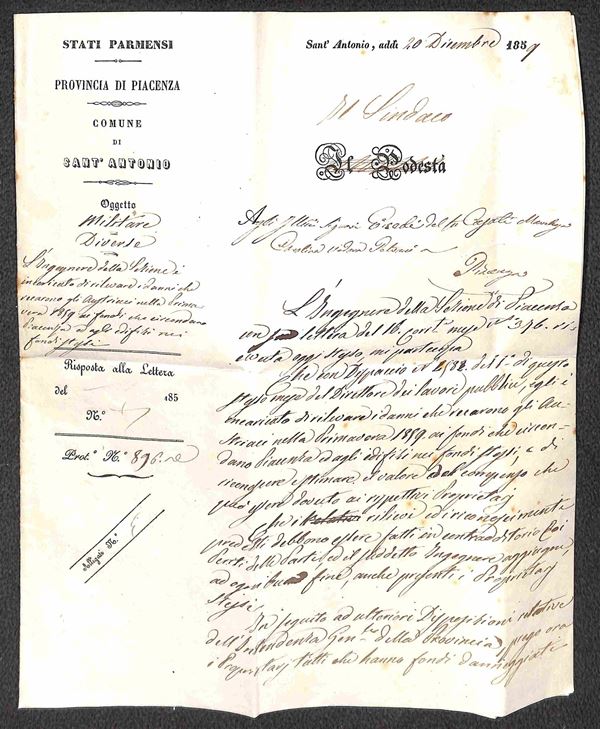 STATI PARMENSI
PROVINCIA DI PIACENZA
COMUNE
DI
SANT' ANTONIO
Oggetto
Militare
Diverse
L'Ingegnere della Sezione è
incaricato di rilevare i danni che
recarono gli Austriaci nella Prima
vera 1859 ai fondi che circondano
Piacenza e agli edifizi nei
fondi stessi
Risposta alla Lettera
del 185
N.º
Prot.º N.º 896
Allegati N.º
Sant' Antonio, addì 20 Dicembre 1859
Il Sindaco
Il Podestà
Agli Ill.mi Signori Eredi del fu
Piacenza
L'Ingegnere della Sezione di Piacenza
con sua lettera del 16 corr.e mese N.º 376 ri-
cevuta oggi stesso, mi partecipa
Che con Dispaccio N.º del 1.º di questo
stesso mese del Direttore dei lavori pubblici, egli è
incaricato di rilevare i danni che recarono gli Au-
striaci nella Primavera 1859 ai fondi che circon-
dano Piacenza e agli edifizi nei fondi stessi, e di
riconoscere e stimare il valore del compenso che
può essere dovuto ai rispettivi Proprietarj
Che i rilievi ed i riconoscimenti
predetti debbono essere fatti in contradditorio coi
Periti delle Parti, ed il suddetto Ingegnere aggiunge,
ad ogni buon fine, anche presenti i Proprietarj
stessi.
In seguito ad ulteriori Disposizioni relative
dell'Intendenza Gen.le della Provincia, prego ora
i Proprietarj tutti che hanno fondi danneggiati